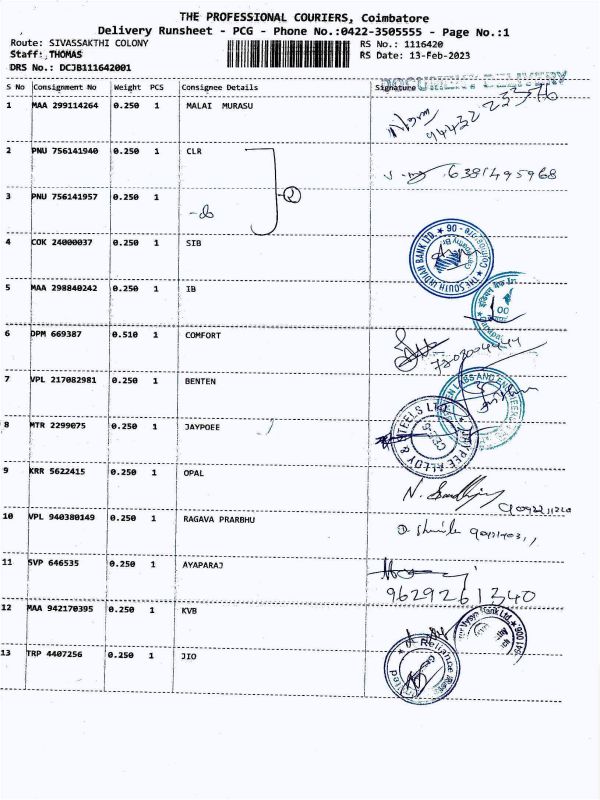 THE PROFESSIONAL COURIERS, Coimbatore
Delivery Runsheet - PCG - Phone No.:0422-3505555 - Page No.:1
Route: SIVASSAKTHI COLONY RS No.: 1116420
Staff: THOMAS RS Date: 13-Feb-2023
DRS No.: DCJB111642001
DOCUMENT DELIVERY
S No Consignment No Weight PCS Consignee Details Signature
1 MAA 299114264 0.250 1 MALAI MURASU
94432 23576
2 PNU 756141940 0.250 1 CLR 6381495968
3 PNU 756141957 0.250 1 2
-do
4 COK 24000037 0.250 1 SIB
THE SOUTH INDIAN BANK LTD. ★ Coimbatore - 06
5 MAA 298840242 0.250 1 IB
6 DPM 669387 0.510 1 COMFORT
7 VPL 217082981 0.250 1 BENTEN
LABS AND ENGINEERS
8 MTR 2299075 0.250 1 JAYPOEE
JAYPEE ALLOY & STEELS LTD.
9 KRR 5622415 0.250 1 OPAL
N.
10 VPL 940380149 0.250 1 RAGAVA PRARBHU
11 SVP 646535 0.250 1 AYAPARAJ
9629261340
12 MAA 942170395 0.250 1 KVB
Vysya Bank Ltd.
13 TRP 4407256 0.250 1 JIO
Reliance